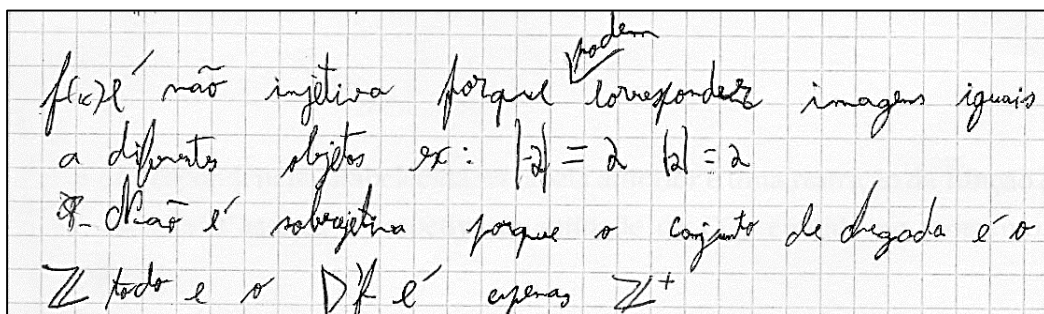 podem
f(x) é não injetiva porque corresponder imagens iguais
a diferentes objetos ex: |-2| = 2 |2| = 2
- Não é sobrejetiva porque o conjunto de chegada é o
ℤ todo e o D'f é apenas ℤ⁺